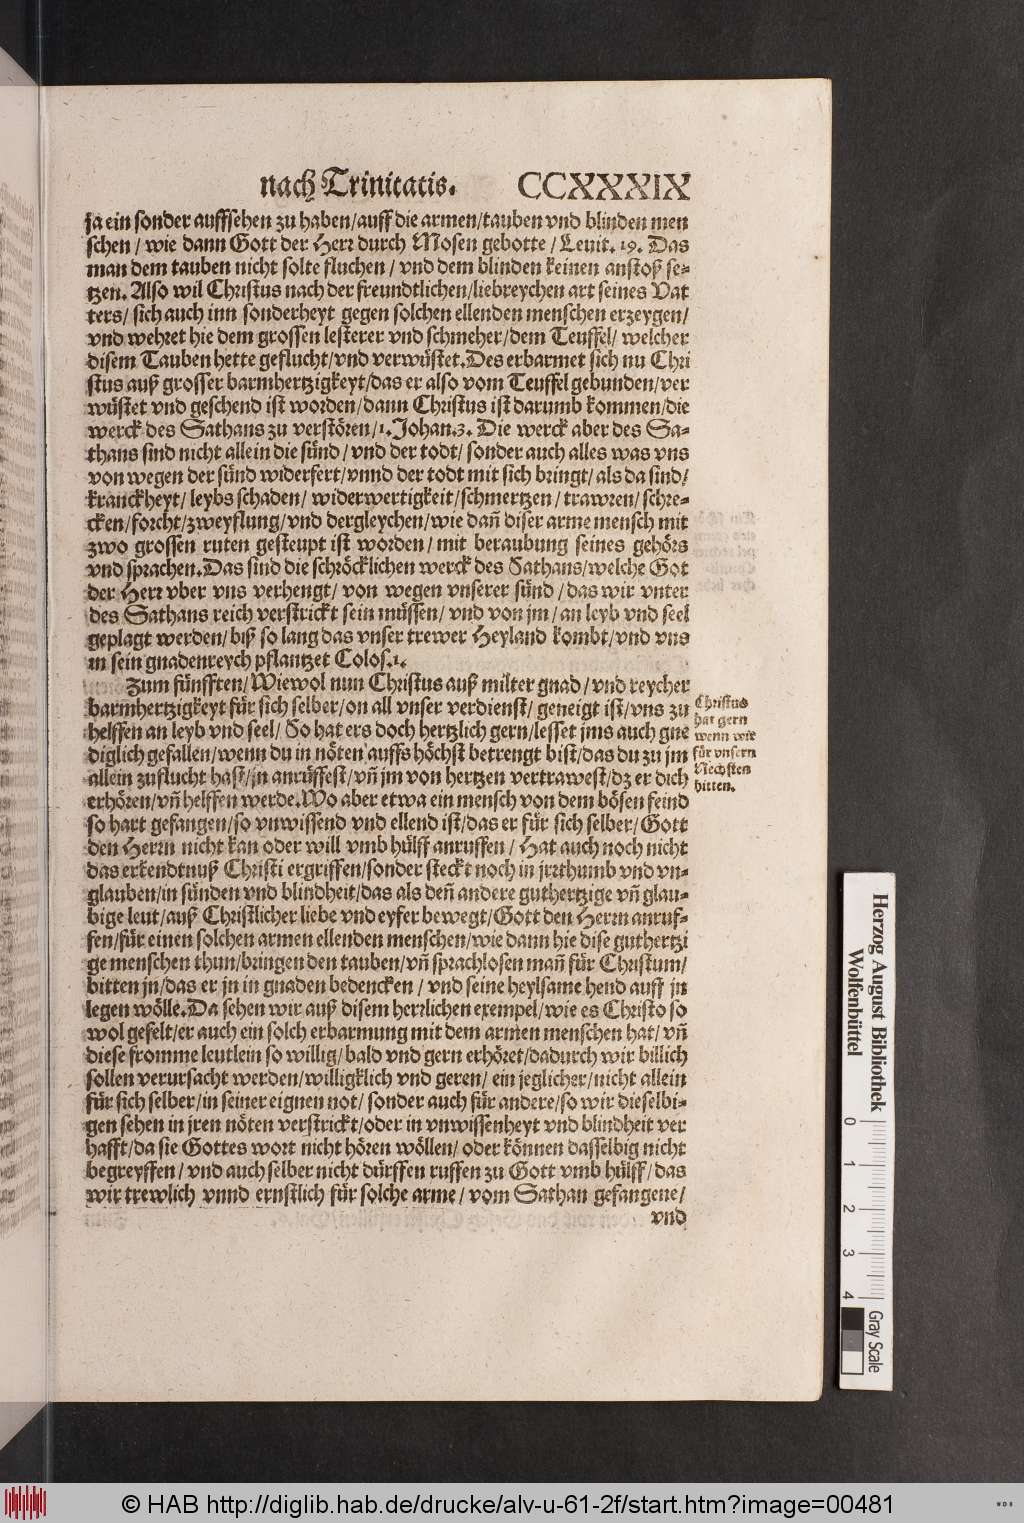 nach Trinitatis. CCXXXIX
ja ein sonder auffsehen zu haben/auff die armen/tauben vnd blinden men
schen/ wie dann Gott der Herr durch Mosen gebotte/ Leuit. 19. Das
man dem tauben nicht solte fluchen/ vnd dem blinden keinen anstoß se-
tzen. Also wil Christus nach der freundtlichen/liebreychen art seines Vat
ters/ sich auch inn sonderheyt gegen solchen ellenden menschen erzeygen/
vnd wehret hie dem grossen lesterer vnd schmeher/dem Teuffel/ welcher
disem Tauben hette geflucht/vnd verwüstet. Des erbarmet sich nu Chri
stus auß grosser barmhertzigkeyt/das er also vom Teuffel gebunden/ver
wüstet vnd geschend ist worden/dann Christus ist darumb kommen/die
werck des Sathans zu verstören/1. Johan.3. Die werck aber des Sa-
thans sind nicht allein die sünd/ vnd der todt/ sonder auch alles was vns
von wegen der sünd widerfert/vnnd der todt mit sich bringt/als da sind/
kranckheyt/ leybs schaden/ widerwertigkeit/schmertzen/ trawren/ schre-
cken/forcht/zweyflung/vnd dergleychen/wie dañ diser arme mensch mit
zwo grossen ruten gesteupt ist worden/ mit beraubung seines gehörs
vnd sprachen. Das sind die schröcklichen werck des Sathans/welche Got
der Herr vber vns verhengt/ von wegen vnserer sünd/das wir vnter
des Sathans reich verstrickt sein müssen/ vnd von jm/ an leyb vnd seel
geplagt werden/ biß so lang das vnser trewer Heyland kombt/vnd vns
in sein gnadenreych pflantzet Colos.1.
Zum fünfften/Wiewol nun Christus auß milter gnad/ vnd reycher
barmhertzigkeyt für sich selber/on all vnser verdienst/ geneigt ist/vns zu
helffen an leyb vnd seel/ So hat ers doch hertzlich gern/lesset jms auch gne
diglich gefallen/wenn du in nöten auffs höchst betrengt bist/das du zu jm
allein zuflucht hast/jn anrüffest/vñ jm von hertzen vertrawest/dz er dich
erhören/vñ helffen werde. Wo aber etwa ein mensch von dem bösen feind
so hart gefangen/so vnwissend vnd ellend ist/das er für sich selber/Gott
den Herrn nicht kan oder will vmb hülff anruffen/ Hat auch noch nicht
das erkendtnuß Christi ergriffen/sonder steckt noch in jrrthumb vnd vn-
glauben/in sünden vnd blindheit/das als deñ andere guthertzige vñ glau-
bige leut/auß Christlicher liebe vnd eyfer bewegt/Gott den Herrn anruf-
fen/für einen solchen armen ellenden menschen/wie dann hie dise guthertzi
ge menschen thun/bringen den tauben/vñ sprachlosen mañ für Christum/
bitten jn/das er jn in gnaden bedencken/ vnd seine heylsame hend auff jn
legen wölle. Da sehen wir auß disem herrlichen exempel/wie es Christo so
wol gefelt/er auch ein solch erbarmung mit dem armen menschen hat/ vñ
diese fromme leutlein so willig/ bald vnd gern erhöret/dadurch wir billich
sollen verursacht werden/williglich vnd geren/ ein jeglicher/nicht allein
für sich selber/in seiner eignen not/ sonder auch für andere/so wir dieselbi-
gen sehen in jren nöten verstrickt/oder in vnwissenheyt vnd blindheit ver
hafft/da sie Gottes wort nicht hören wöllen/ oder können dasselbig nicht
begreyffen/ vnd auch selber nicht dürffen ruffen zu Gott vmb hülff/das
wir trewlich vnnd ernstlich für solche arme/ vom Sathan gefangene/
vnd
Christus
hat gern
wenn wir
für vnsern
Nechsten
bitten.
Herzog August Bibliothek
Wolfenbüttel
0 1 2 3 4
Gray Scale
© HAB http://diglib.hab.de/drucke/alv-u-61-2f/start.htm?image=00481